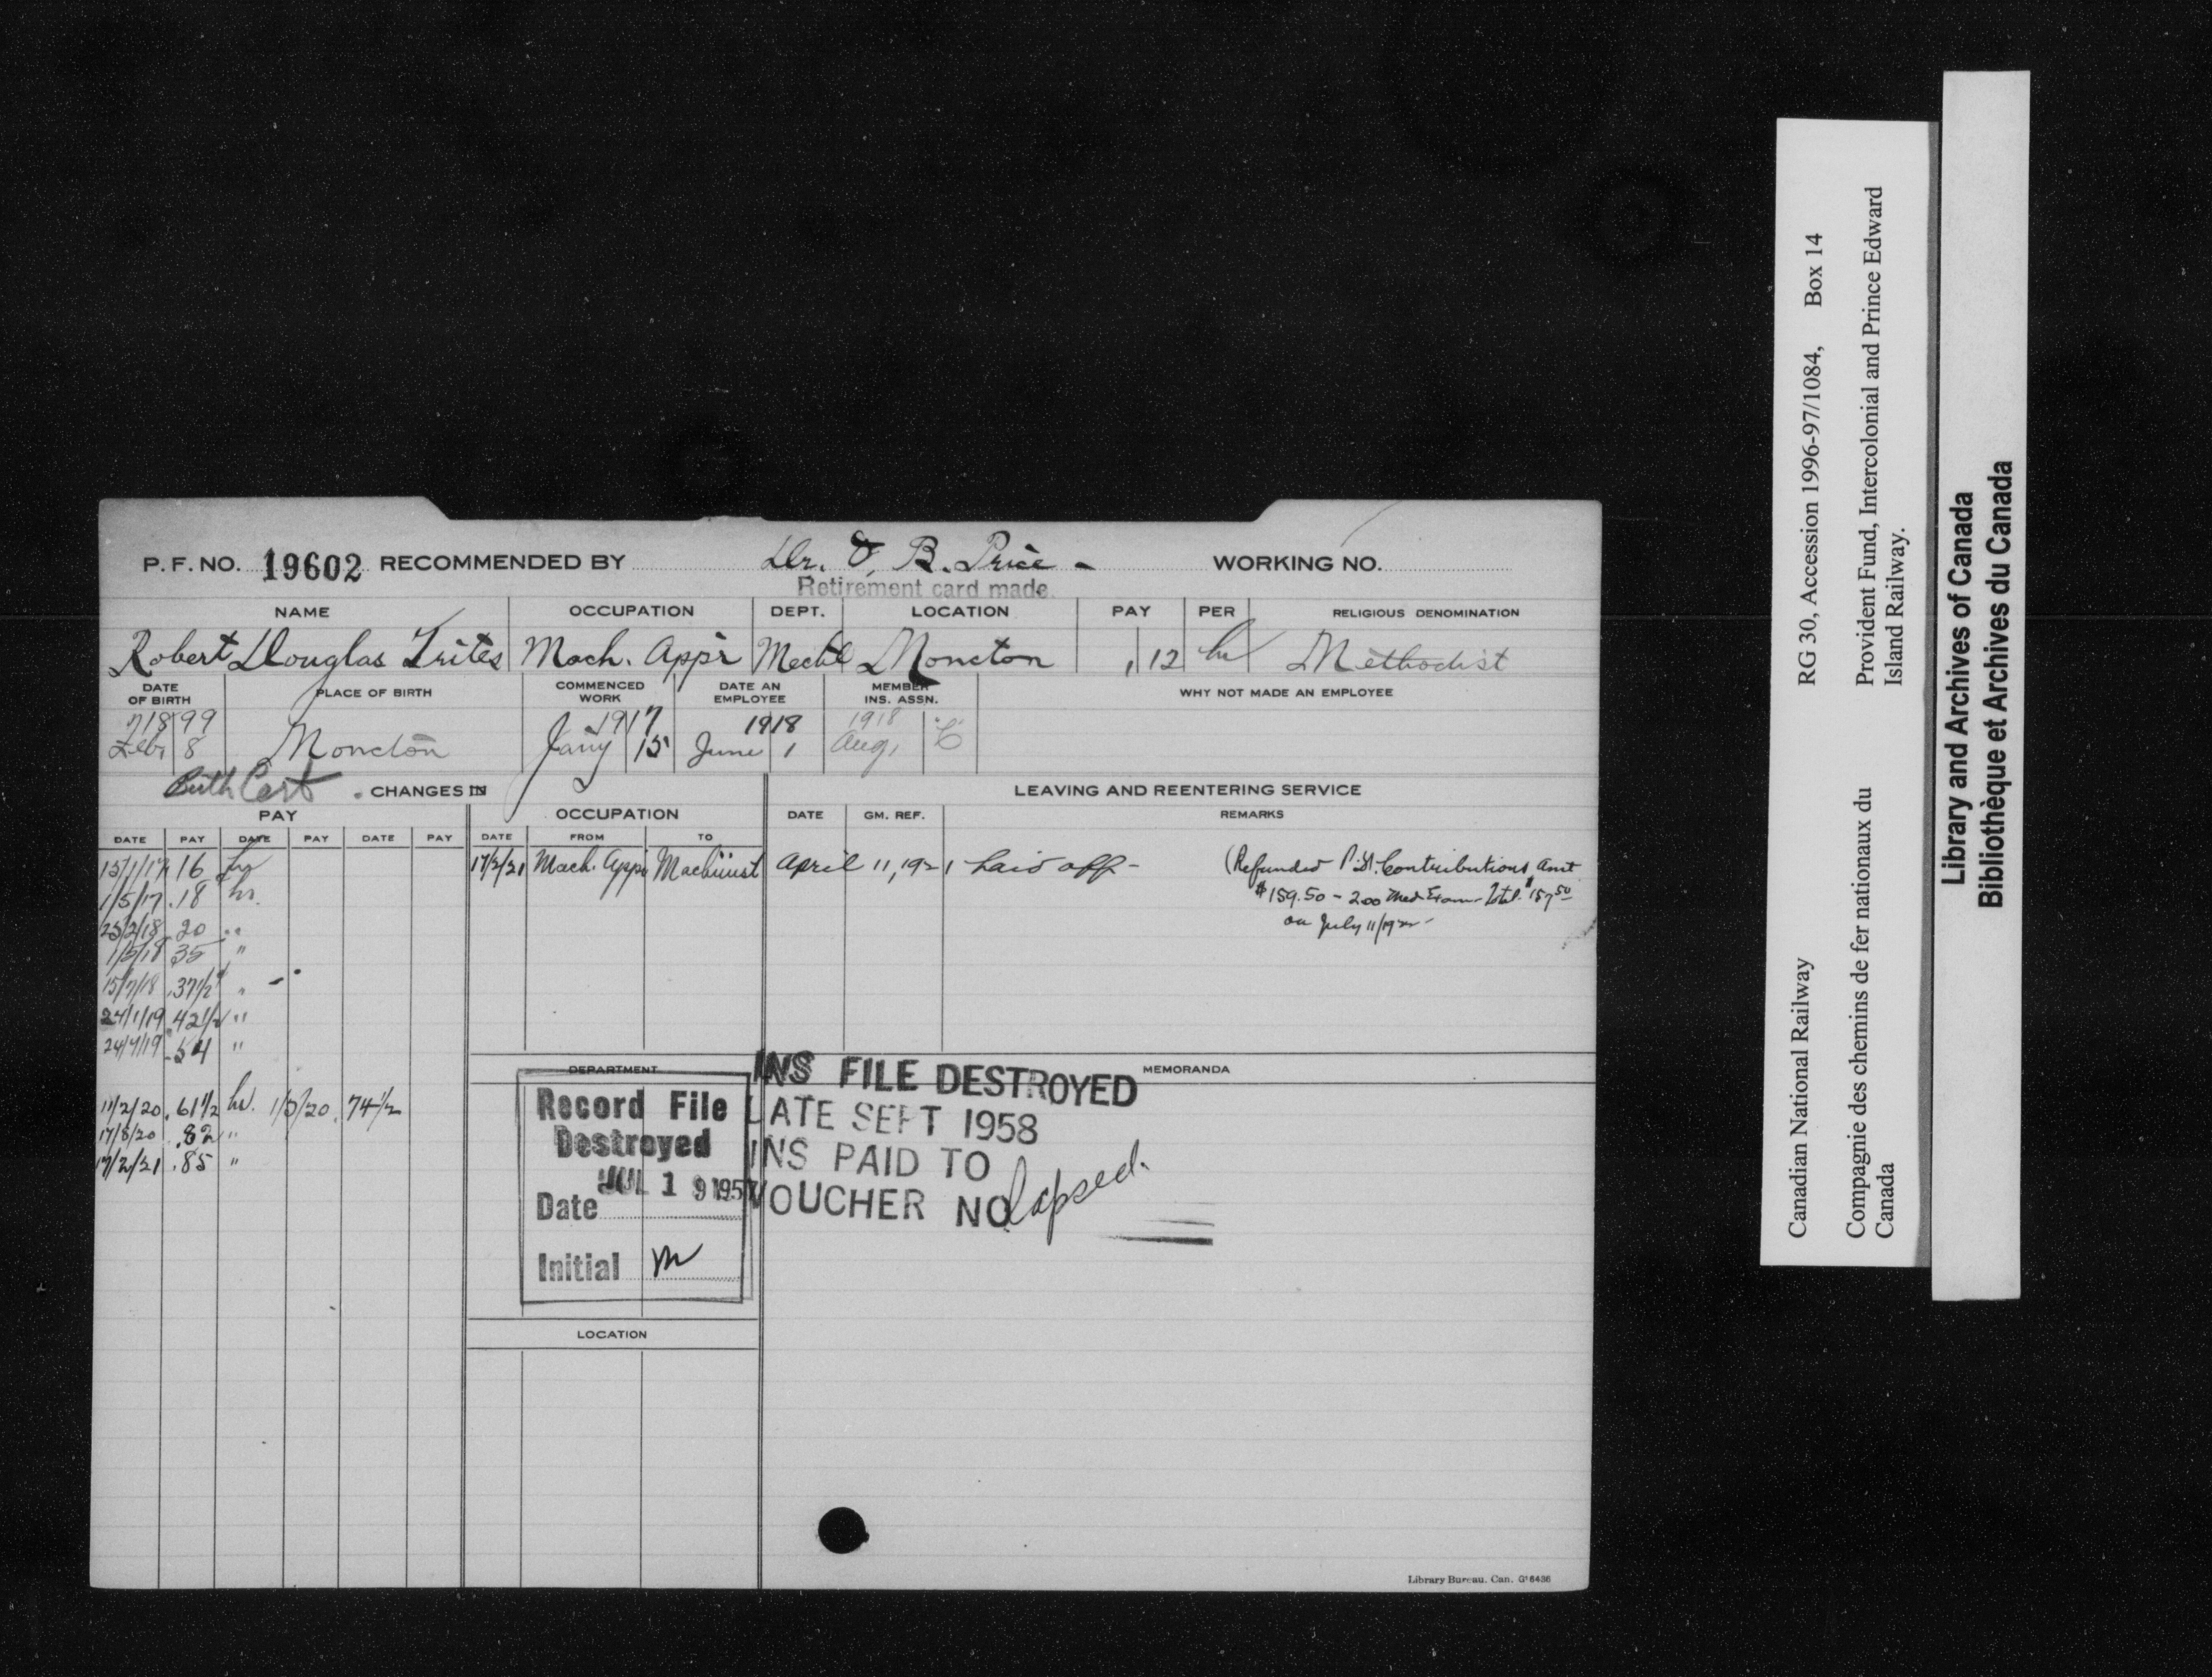 P. F. NO. 19602 RECOMMENDED BY Dr. O. B. Price - WORKING NO.
Retirement card made.
NAME OCCUPATION DEPT. LOCATION PAY PER RELIGIOUS DENOMINATION
Robert Douglas Trites Mach. Appr Mechl Moncton .12 hr Methodist
DATE OF BIRTH PLACE OF BIRTH COMMENCED WORK DATE AN EMPLOYEE MEMBER INS. ASSN. WHY NOT MADE AN EMPLOYEE
1899 1917 1918 1918
Feby 8 Moncton Jany 15 June 1 Aug. "C"
Birth Cert. CHANGES IN LEAVING AND REENTERING SERVICE
PAY OCCUPATION DATE GM. REF. REMARKS
DATE PAY DATE PAY DATE PAY DATE FROM TO
15/1/17 .16 hr 17/2/21 Mach. Appr Machinist April 11, 1921 Laid off - (Refunded P.F. Contributions Amt
1/5/17 .18 hr. $159.50 - 2.00 Med. Exam - Total $157.50
25/2/18 .20 " on July 11/1922 -
1/5/18 35 "
15/7/18 .37½ "
24/1/19 .42½ "
24/7/19 .54 "
DEPARTMENT MEMORANDA
11/2/20 .61½ hr. 1/5/20 .74½
17/8/20 .82 "
17/2/21 .85 "
Record File
Destroyed
Date JUL 19 1957
Initial m
INS FILE DESTROYED
DATE SEPT 1958
INS PAID TO
VOUCHER NO lapsed.
LOCATION
Library Bureau. Can. G16436
Canadian National Railway RG 30, Accession 1996-97/1084, Box 14
Compagnie des chemins de fer nationaux du Provident Fund, Intercolonial and Prince Edward
Canada Island Railway.
Library and Archives of Canada
Bibliothèque et Archives du Canada